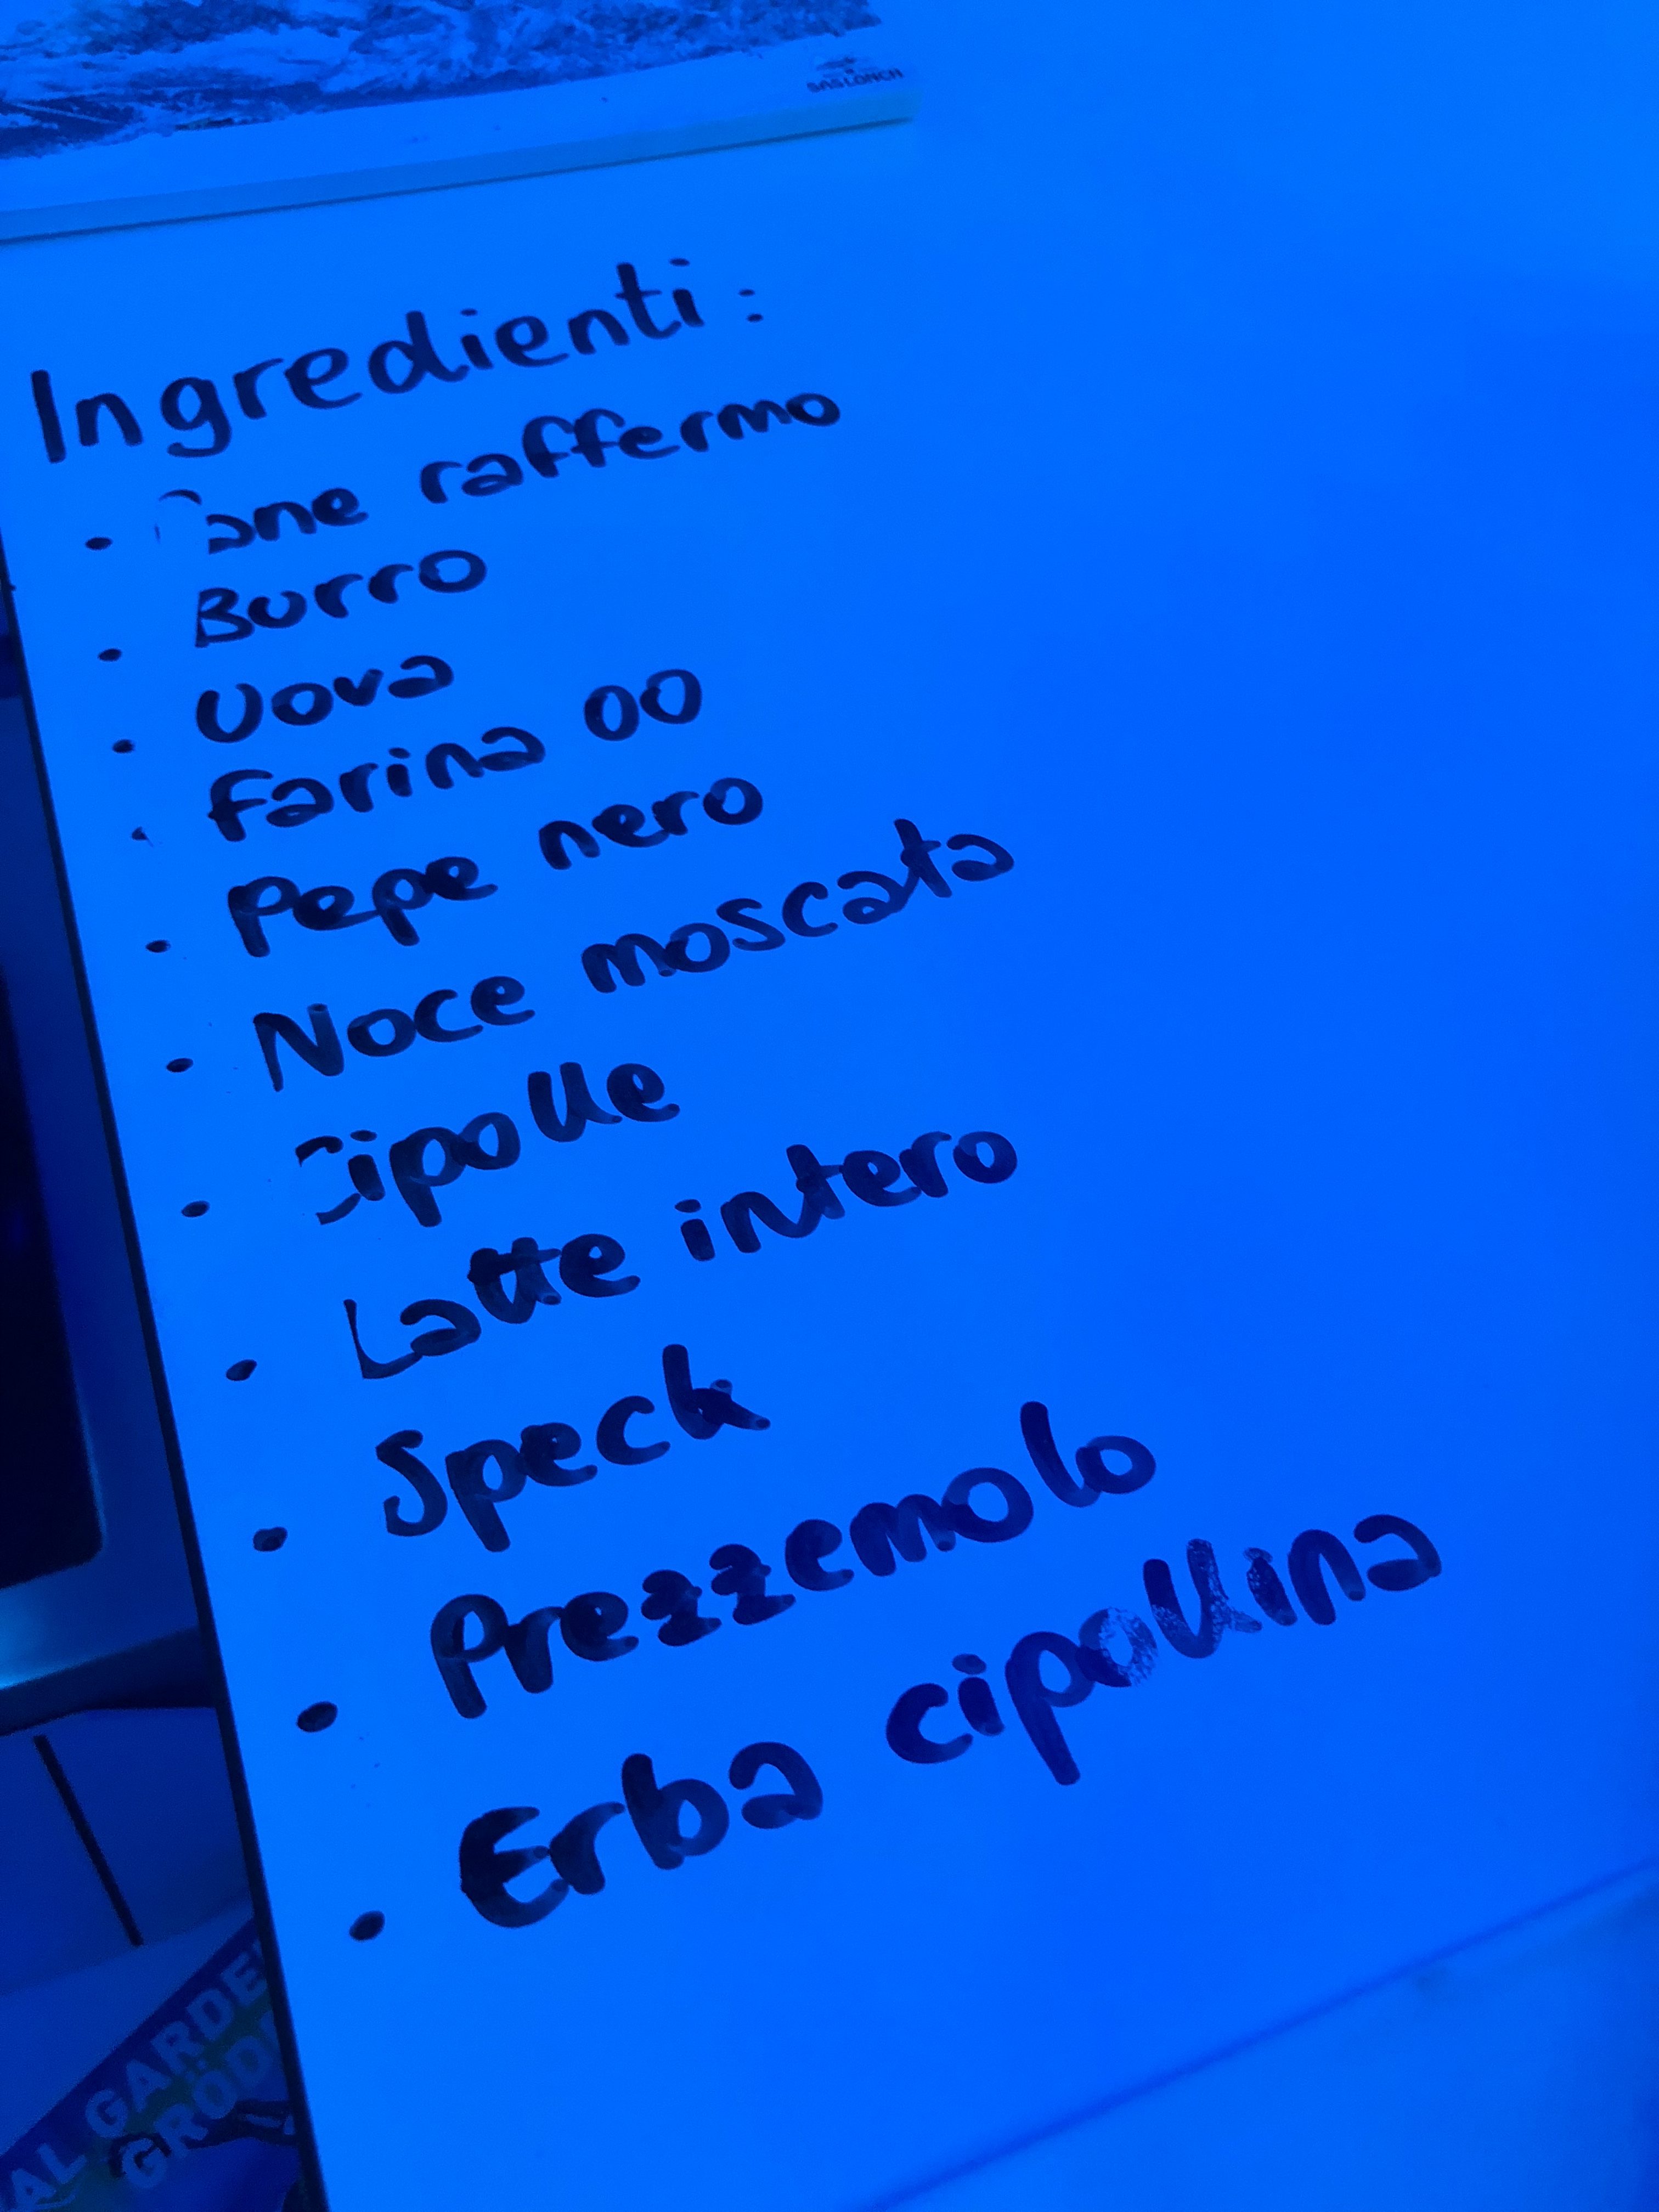 DASLONCH
Ingredienti:
• Pane raffermo
• Burro
• Uova
• Farina 00
• Pepe nero
• Noce moscata
• Cipolle
• Latte intero
• Speck
• Prezzemolo
• Erba cipollina
AL GARDE
GRÖD